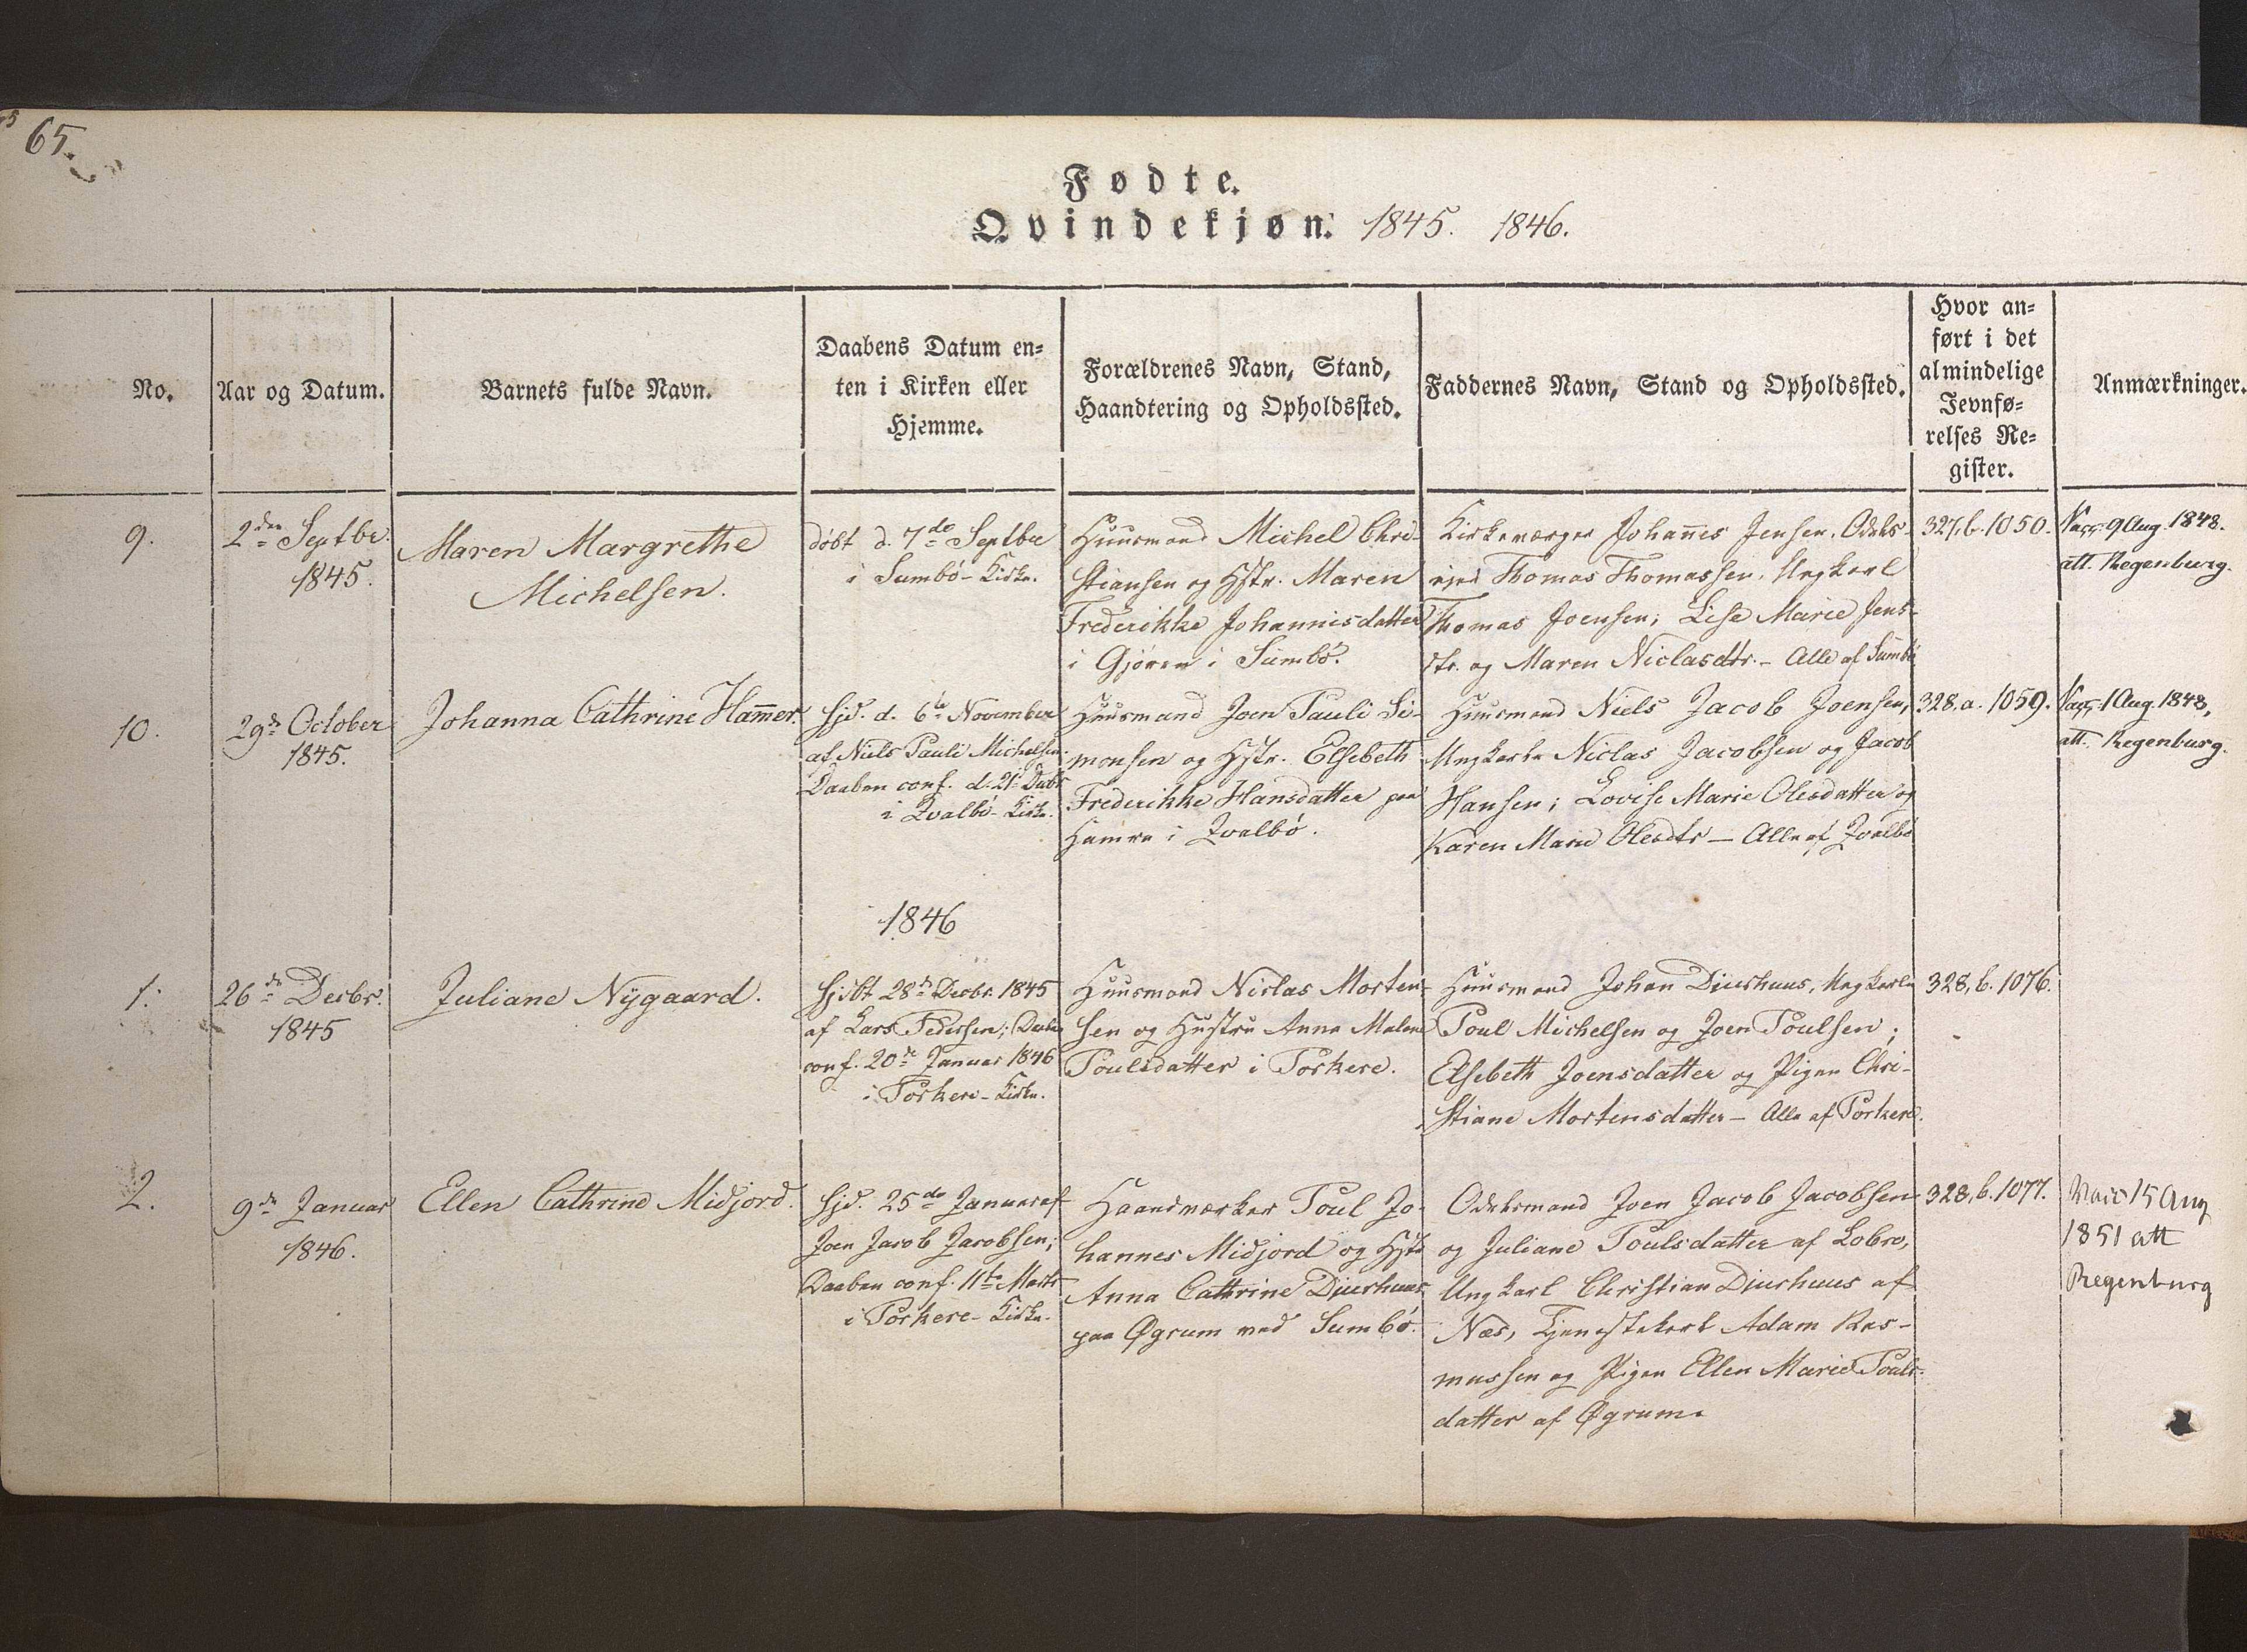 65.
Fødte.
Qvindekjøn. 1845. 1846.
No.
Aar og Datum.
Barnets fulde Navn.
Daabens Datum en-
ten i Kirken eller
Hjemme.
Forældrenes Navn, Stand,
Haandtering og Opholdssted.
Faddernes Navn, Stand og Opholdssted.
Hvor an-
ført i det
almindelige
Jevnfø-
relses Re-
gister.
Anmærkninger.
9.
2den Septbr.
1845.
Maren Margrethe
Michelsen.
döbt d. 7de Septbr
i Sumbö-Kirke.
Huusmand Michel Chri-
stiansen og Hstr. Maren
Frederikke Johannisdatter
i Gjören i Sumbö.
Kirkeværger Johannis Jensen, Odels-
Thomas Thomassen, Ungkarl
Thomas Joensen; Lise Marie Jens-
dtr. og Maren Niclasdtr. - Alle af Sumbö
327,b.1050.
Vacc. 9 Aug. 1848.
att. Regenburg.
10.
29de October
1845.
Johanna Cathrine Ham̄er.
Hjd. d. 6te November
af Niels Pauli Michelsen.
Daaben conf. d. 21de Decbr
i Qvalbö-Kirke.
Huusmand Joen Pauli Si-
monsen og Hstr. Elsebeth
Frederikke Hansdatter paa
Hamre i Qvalbö.
Huusmand Niels Jacob Joensen,
Ungkarle Niclas Jacobsen og Jacob
Hansen; Lovise Marie Olesdatter og
Karen Marie Olesdtr - Alle af Qvalbö
328.a.1059.
Vacc. 1 Aug. 1848,
att. Regenburg.
1846
1.
26de Decbr.
1845
Juliane Nÿgaard.
Hjdbt 28de Decbr. 1845
af Lars Pedersen; Daaben
conf. 20de Januar 1846
i Porkere-Kirke.
Huusmand Niclas Morten-
sen og Hustru Anna Malene
Poulsdatter i Porkere.
Huusmand Johan Djurhuus, Ungkarle
Poul Michelsen og Joen Poulsen;
Elsebeth Joensdatter og Pigen Chri-
stiane Mortensdatter - Alle af Porkere.
328,b.1076.
2.
9de Januar
1846.
Ellen Cathrine Midjord.
Hjd. 25de Januar af
Joen Jacob Jacobsen;
Daaben conf. 11te Marts
i Porkere-Kirke.
Haandværker Poul Jo-
hannes Midjord og Hstr
Anna Cathrine Djurhuus
paa Øgrum ved Sumbö.
Odelsmand Joen Jacob Jacobsen
og Juliane Poulsdatter af Lobro,
Ungkarl Christian Djurhuus af
Næs, Tjenestekarl Adam Ras-
mussen og Pigen Ellen Marie Pouls-
datter af Øgrum.
328,b.1077.
Vacc 15 Aug
1851 att
Regenburg